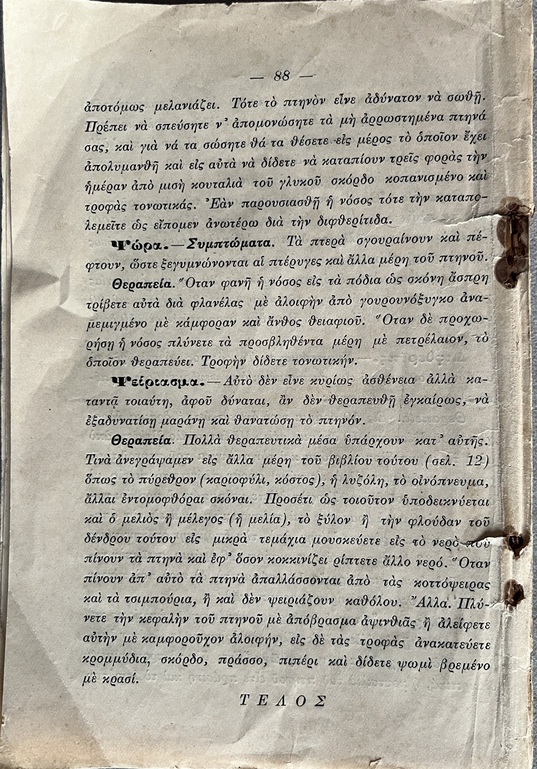 — 88 —
ἀποτόμως μελανιάζει. Τότε τὸ πτηνὸν εἶνε ἀδύνατον νὰ σωθῇ.
Πρέπει νὰ σπεύσητε ν' ἀπομονώσητε τὰ μὴ ἀρρωστημένα πτηνά
σας, καὶ γιὰ νά τα σώσητε θά τα θέσετε εἰς μέρος τὸ ὁποῖον ἔχει
ἀπολυμανθῆ καὶ εἰς αὐτὰ νὰ δίδετε νὰ καταπίουν τρεῖς φορὰς τὴν
ἡμέραν ἀπὸ μισὴ κουταλιὰ τοῦ γλυκοῦ σκόρδο κοπανισμένο καὶ
τροφὰς τονωτικάς. Ἐὰν παρουσιασθῇ ἡ νόσος τότε τὴν καταπο-
λεμεῖτε ὡς εἴπομεν ἀνωτέρω διὰ τὴν διφθερίτιδα.
Ψώρα.—Συμπτώματα. Τὰ πτερὰ σγουραίνουν καὶ πέ-
φτουν, ὥστε ξεγυμνώνονται αἱ πτέρυγες καὶ ἄλλα μέρη τοῦ πτηνοῦ.
Θεραπεία. Ὅταν φανῇ ἡ νόσος εἰς τὰ πόδια ὡς σκόνη ἄσπρη
τρίβετε αὐτὰ διὰ φλανέλας μὲ ἀλοιφὴν ἀπὸ γουρουνόξυγκο ἀνα-
μεμιγμένο μὲ κάμφοραν καὶ ἄνθος θειαφιοῦ. Ὅταν δὲ προχω-
ρήσῃ ἡ νόσος πλύνετε τὰ προσβληθέντα μέρη μὲ πετρέλαιον, τὸ
ὁποῖον θεραπεύει. Τροφὴν δίδετε τονωτικήν.
Ψείριασμα.—Αὐτὸ δὲν εἶνε κυρίως ἀσθένεια ἀλλὰ κα-
ταντᾷ τοιαύτη, ἀφοῦ δύναται, ἂν δὲν θεραπευθῇ ἐγκαίρως, νὰ
ἐξαδυνατίσῃ μαράνῃ καὶ θανατώσῃ τὸ πτηνόν.
Θεραπεία. Πολλὰ θεραπευτικὰ μέσα ὑπάρχουν κατ' αὐτῆς.
Τινὰ ἀνεγράψαμεν εἰς ἄλλα μέρη τοῦ βιβλίου τούτου (σελ. 12)
ὅπως τὸ πύρεθρον (καριοφύλι, κόστος), ἡ λυζόλη, τὸ οἰνόπνευμα,
ἄλλαι ἐντομοφθόραι σκόναι. Προσέτι ὡς τοιοῦτον ὑποδεικνύεται
καὶ ὁ μελιὸς ἢ μέλεγος (ἡ μελία), τὸ ξύλον ἢ τὴν φλούδαν τοῦ
δένδρου τούτου εἰς μικρὰ τεμάχια μουσκεύετε εἰς τὸ νερὸ ποῦ
πίνουν τὰ πτηνὰ καὶ ἐφ' ὅσον κοκκινίζει ρίπτετε ἄλλο νερό. Ὅταν
πίνουν ἀπ' αὐτὸ τὰ πτηνὰ ἀπαλλάσσονται ἀπὸ τὰς κοττόψειρας
καὶ τὰ τσιμπούρια, ἢ καὶ δὲν ψειριάζουν καθόλου. Ἄλλα. Πλύ-
νετε τὴν κεφαλὴν τοῦ πτηνοῦ μὲ ἀπόβρασμα ἀψινθιᾶς ἢ ἀλείφετε
αὐτὴν μὲ καμφοροῦχον ἀλοιφήν, εἰς δὲ τὰς τροφὰς ἀνακατεύετε
κρομμύδια, σκόρδο, πράσσο, πιπέρι καὶ δίδετε ψωμὶ βρεμένο
μὲ κρασί.
ΤΕΛΟΣ